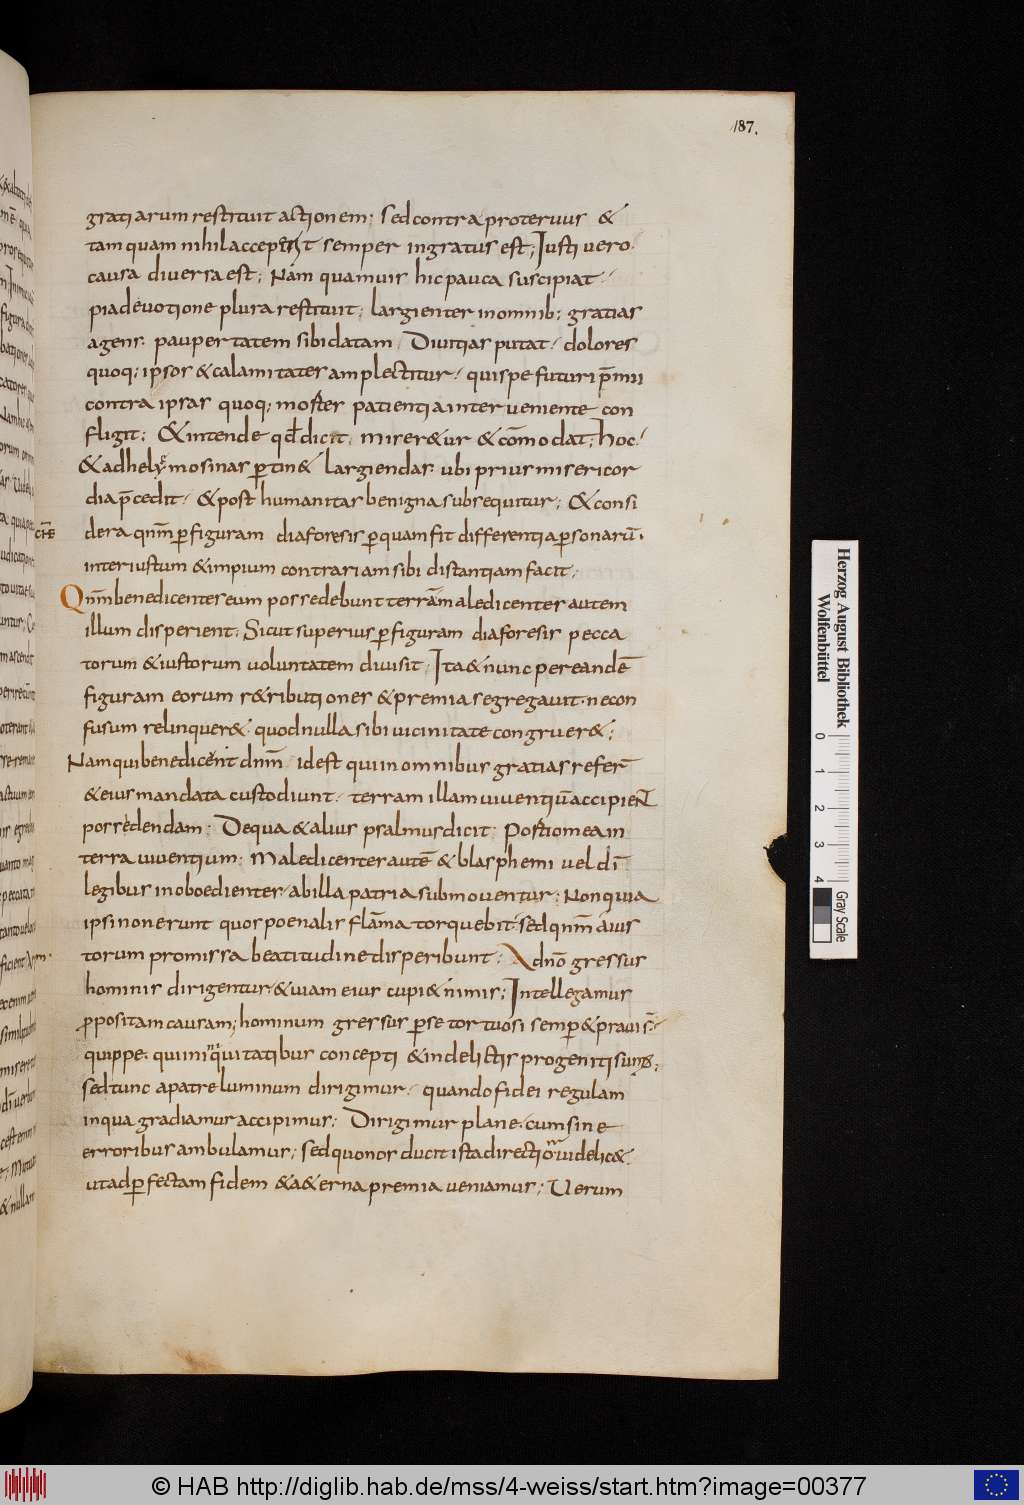 187.
gratiarum restituit actionem; sed contra proteruus &
tamquam nihil acceperit semper ingratus est; Iusti uero
causa diuersa est; Nam quamuis hic pauca suscipiat
pia deuotione plura restituit; largienter in omnib; gratias
agens. paupertatem sibi datam Diuitias putat. dolores
quoq; ipsos & calamitates amplectitur. qui spe futuri p̄mii
contra ipsas quoq; mostes patientia interueniente con
fligit; & intende qđ dicit. miser&ur & com̄odat; hoc
& ad helymosinas ꝑtin& largiendas. ubi prius misericor
dia p̄cedit. & post humanitas benigna subsequitur; & consi
dera qnm̄ ꝑ figuram diaforesis ꝑ quam fit differentia ꝑsonarū.
inter iustum & impium contrariam sibi distantiam facit;
Qnm̄ benedicentes eum possedebunt terrā maledicentes autem
illum disperient; Sicut superius ꝑ figuram diaforesis pecca
torum & iustorum uoluntatem diuisit. Ita & nunc per eandē
figuram eorum r&ributiones & premia segregauit. ne con
fusum relinquer&. quod nulla sibi uicinitate congruer&;
Nam qui benedicent dnm̄ idest qui in omnibus gratias refert̄
& eius mandata custodiunt. terram illam uiuentiū accipient
possedendam; De qua & alius psalmus dicit; Portio mea in
terra uiuentium; Maledicentes autē & blasphemi uel dī
legibus inoboedientes. ab illa patria submouentur; Non quia
ipsi non erunt quos poenalis flam̄a torquebit. sed qnm̄ a iu
torum promissa beatitudine disperibunt; A dnō gressus
hominis dirigentur. & uiam eius cupi& nimis; Intellegamus
ꝓpositam causam; hominum gressus ꝑ se tortuosi semꝑ & praui s̄
quippe. qui in iniquitatibus concepti & in delictis progeniti sumus;
sed tunc a patre luminum dirigimur. quando fidei regulam
in qua gradiamur accipimus; Dirigimur plane. cum sine
erroribus ambulamus; sed quo nos ducit ista directio. uidelic&
ut ad ꝑfectam fidem & a&erna premia ueniamus; Uerum
Herzog August Bibliothek
Wolfenbüttel
0 1 2 3 4
Gray Scale
© HAB http://diglib.hab.de/mss/4-weiss/start.htm?image=00377